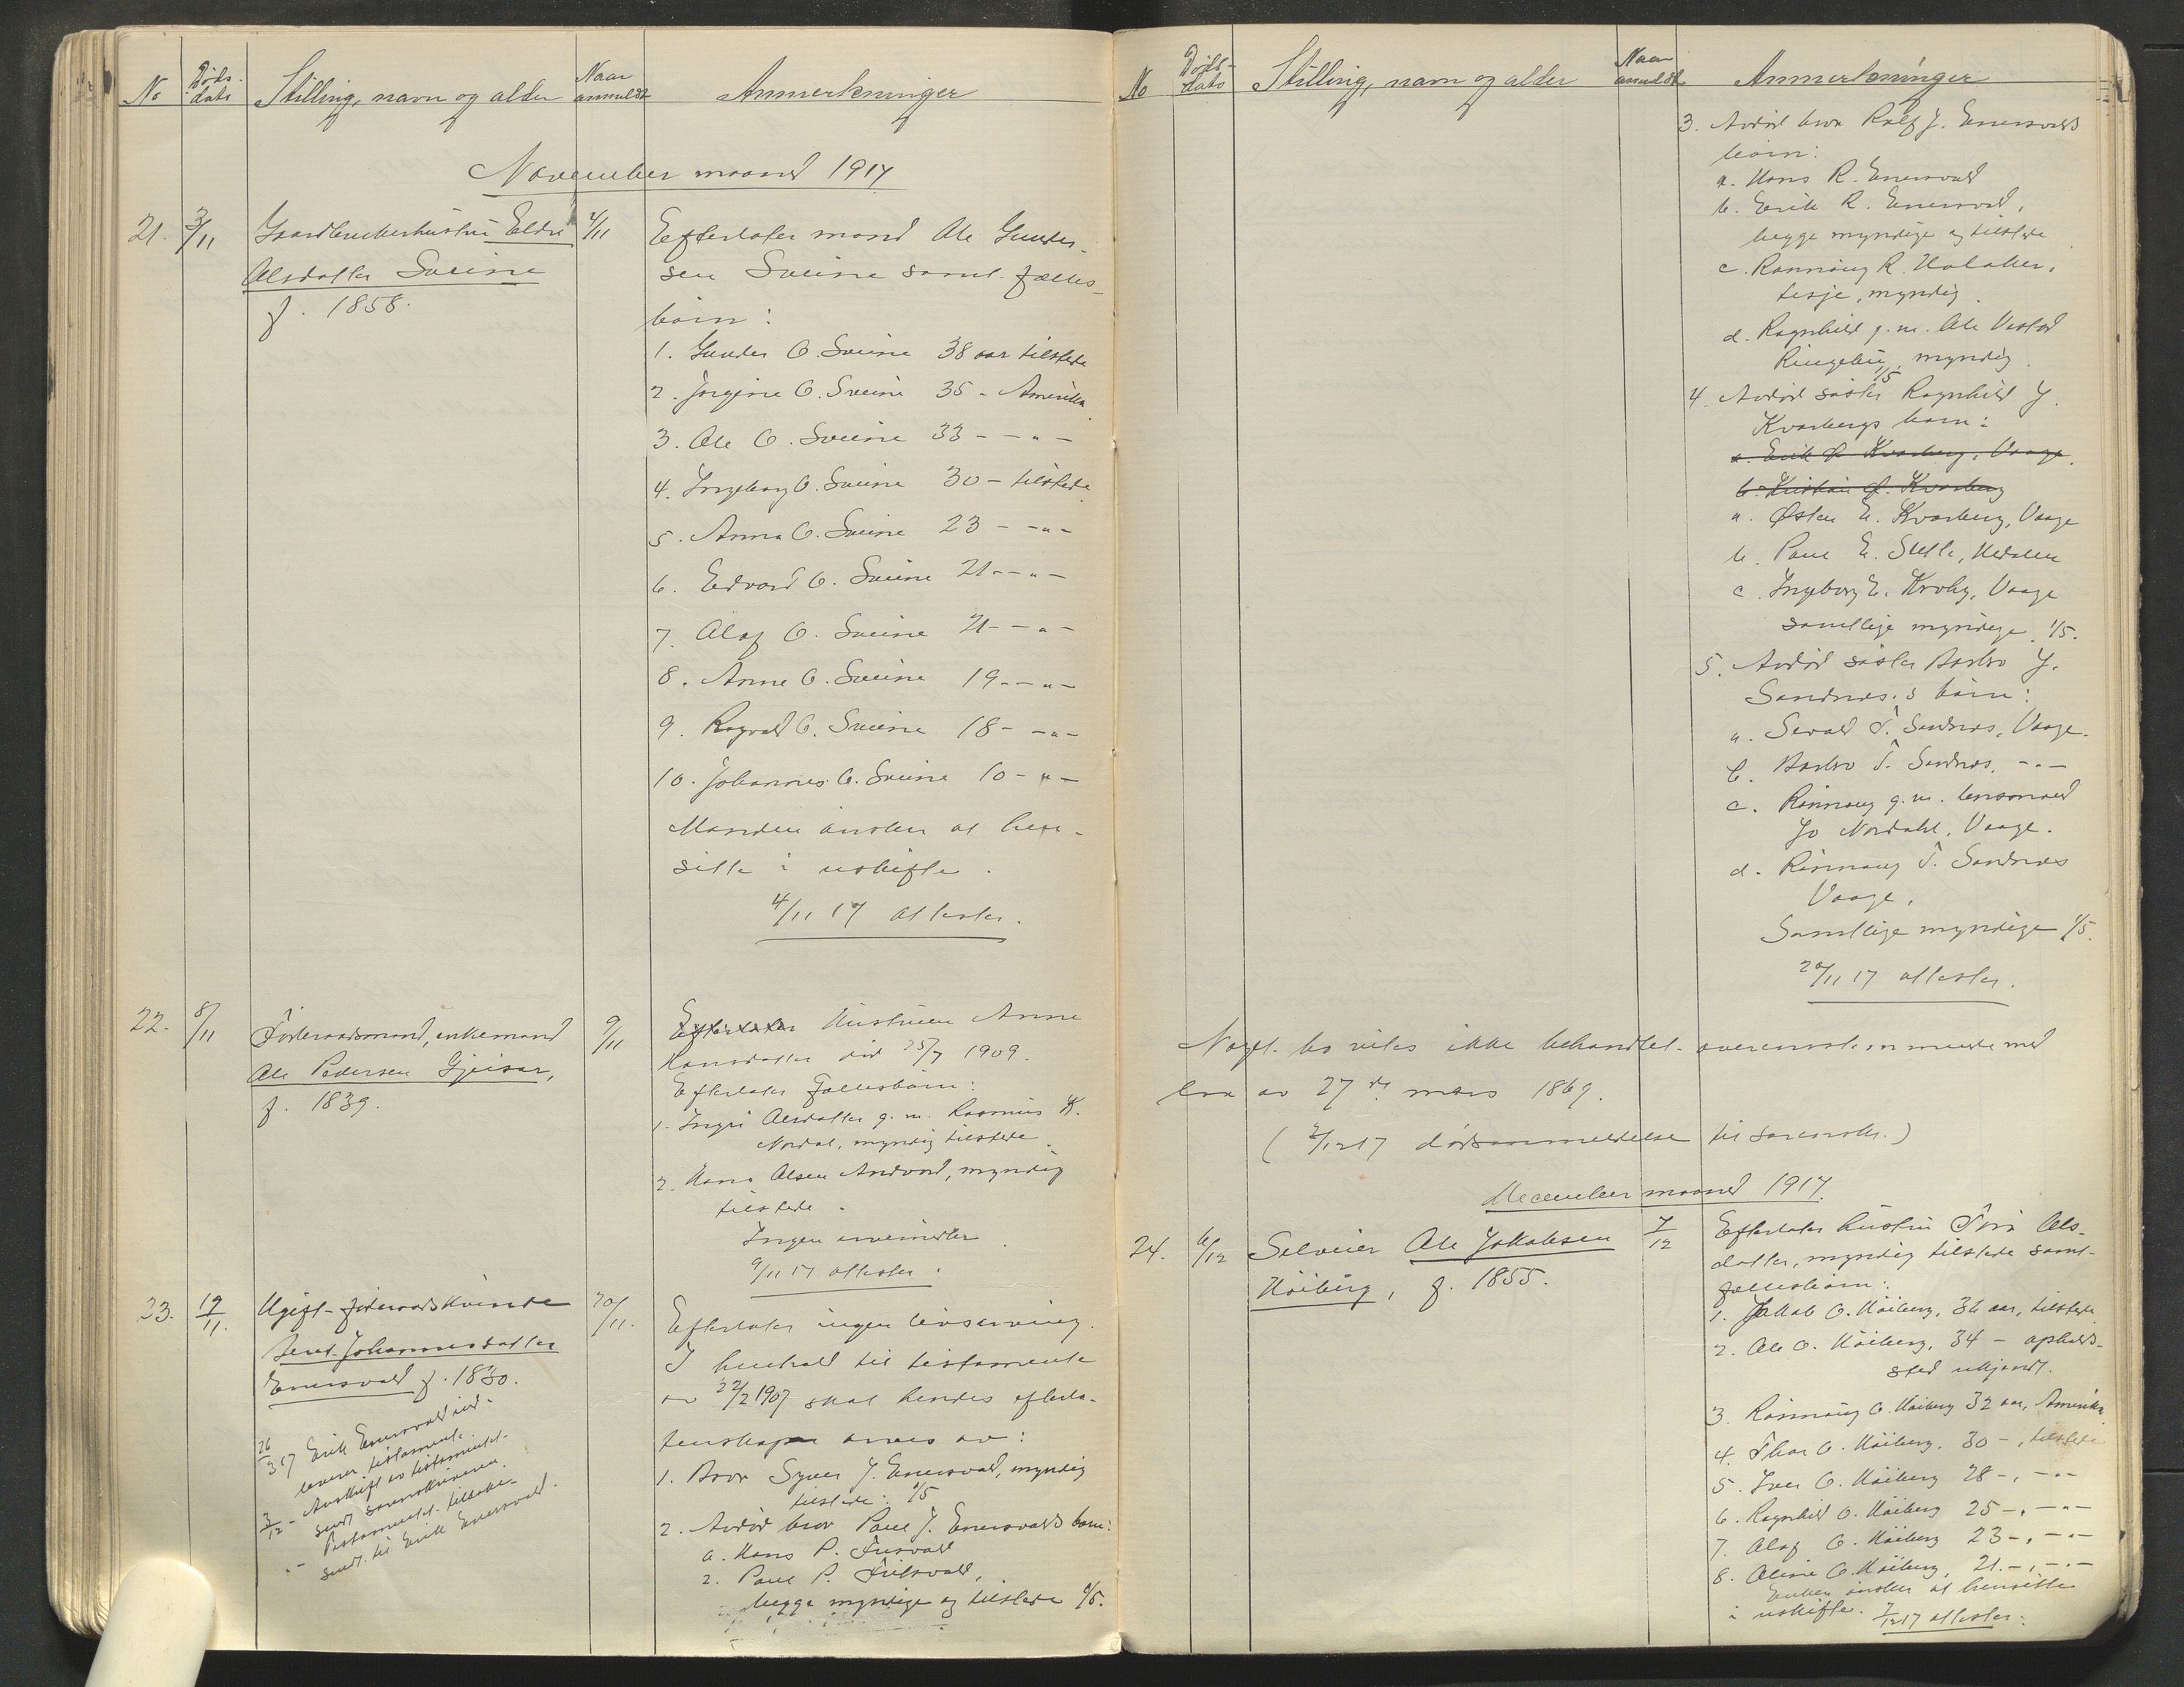 No
Døds-
dato
Stilling, navn og alder
Naar
anmeldt
Anmerkninger
November maaned 1917
21.
3/11
Gaardbrukerhustru Eldri
Olsdatter Sveine
f. 1858.
4/11
Efterlater mand Ole Gunder-
sen Sveine samt fælles-
børn:
1. Gunder O. Sveine 38 aar tilstede
2. Jørgine O. Sveine 35 - Amerika
3. Ole O. Sveine 33 - - " -
4. Ingeborg O. Sveine 30 - tilstede
5. Anna O. Sveine 23 - - " -
6. Edvard O. Sveine 21 - - " -
7. Olaf O. Sveine 21 - - " -
8. Anne O. Sveine 19 - - " -
9. Ragvald O. Sveine 18 - - " -
10. Johannes O. Sveine 10 - " -
Manden ønsker at hen-
sitte i uskifte.
4/11 17 attester.
22.
8/11
Føderaadsmand, enkemand
Ole Pedersen Gjeisar,
f. 1839.
9/11
Efterlater Hustruen Anne
Hansdatter død 25/7 1909.
Efterlater fællesbørn:
1. Ingri Olsdatter g. m. Rasmus K.
Nordal, myndig tilstede.
2. Hans Olsen Andvord, myndig
tilstede.
Ingen umyndige
9/11 17 attester.
23.
19/11.
Ugift føderaadskvinde
Johannesdatter
Enersvold f. 1830.
26/3 17 Erik Enersvold ind-
leverer testamente.
3/12 - Avskrift av testamentet
sendt sorenskriveren.
" - Testamentet tilbake-
sendt til Erik Enersvold.
20/11.
Efterlater ingen livsarving.
I henhold til testamente
av 22/2 1907 skal hendes efterla-
tenskaper arves av:
1. Bror Syver J. Enersvold, myndig
tilstede: 1/5
2. Avdød bror Paul J. Enersvolds børn:
a. Hans P.
2. Paul P.
begge myndige og tilstede 1/5.
No
Døds-
dato
Stilling, navn og alder
Naar
anmeldt
Anmerkninger
3. Avdød bror Rolf J. Enersvolds
børn:
a. Hans R. Enersvold
b. Erik R. Enersvold,
begge myndige og tilstede
c. Rønnaug R. Holaker,
Lesje, myndig.
d. Ragnhild g. m. Ole Vestad
Ringebu, myndig.
1/5
4. Avdød søster Ragnhild J.
Kvarbergs børn:
a. Erik Kvarberg, Vaage.
b. Kristian Kvarberg
a. Østen E. Kvarberg, Vaage
b. Paul E. Slette, Hedalen
c. Ingeborg E. Kroby, Vaage
samtlige myndige. 1/5.
5. Avdød søster Barbro J.
Sandnes's børn:
a. Sevald T. Sandnes, Vaage.
b. Barbro T. Sandnes, - " -
c. Rønnaug g. m. lensmand
Jo Nordahl, Vaage.
d. Rønnaug T. Sandnes
Vaage.
Samtlige myndige 1/5.
20/11 17 attester.
Noget bo vites ikke behandlet overensstemmende med
lov av 27de mars 1869.
(3/12 17 dødsanmeldelse til sorenskr.)
December maaned 1917.
24.
6/12
Selveier Ole Jakobsen
Høiberg, f. 1855.
7/12
Efterlater hustru Toro Ols-
datter, myndig tilstede samt
fællesbørn:
1. Jakob O. Høiberg, 36 aar, tilstede
2. Ole O. Høiberg, 34 - opholds-
sted ukjendt.
3. Rønnaug O. Høiberg 32 aar, Amerika
4. Thor O. Høiberg, 30 -, tilstede
5. Iver O. Høiberg 28 -, - " -
6. Ragnhild O. Høiberg 25 -, - " -
7. Olaf O. Høiberg 23 -, - " -
8. Oline O. Høiberg, 21 -, - " -
Enken ønsker at hensitte
i uskifte. 7/12 17 attester.